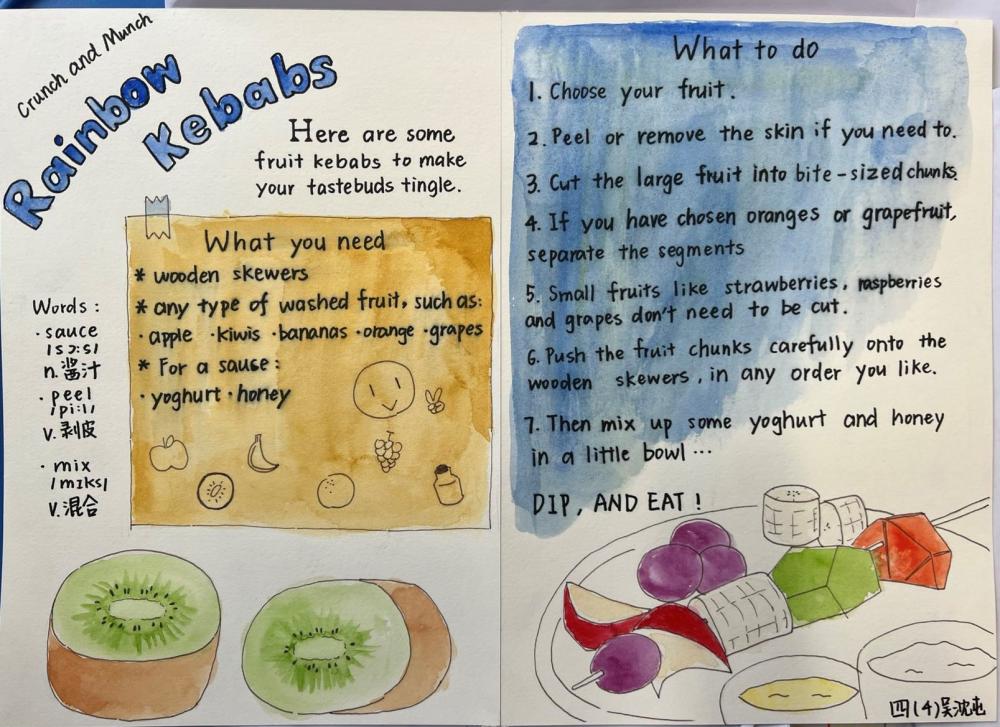 Crunch and Munch
Rainbow
Kebabs
Here are some
fruit kebabs to make
your tastebuds tingle.
What you need
* wooden skewers
* any type of washed fruit, such as:
· apple · kiwis · bananas · orange · grapes
* For a sauce:
· yoghurt · honey
Words:
· sauce
/sɔ:s/
n. 酱汁
· peel
/pi:l/
v. 剥皮
· mix
/mɪks/
v. 混合
What to do
1. Choose your fruit.
2. Peel or remove the skin if you need to.
3. Cut the large fruit into bite-sized chunks.
4. If you have chosen oranges or grapefruit,
separate the segments
5. Small fruits like strawberries, raspberries
and grapes don't need to be cut.
6. Push the fruit chunks carefully onto the
wooden skewers, in any order you like.
7. Then mix up some yoghurt and honey
in a little bowl...
DIP, AND EAT!
四(4)吴沈